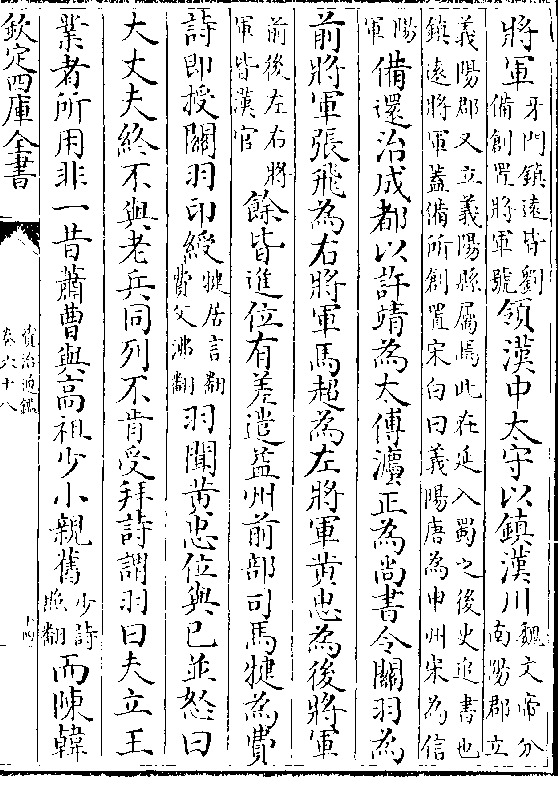 將軍牙門鎮遠皆劉備創置將軍號領漢中太守以鎮漢川魏文帝分南陽郡立
義陽郡又立義陽縣屬焉此在延入蜀之後史追書也
鎮遠將軍蓋備所創置宋白曰義陽唐為申州宋為信
陽軍備還治成都以許靖為太傅灋正為尚書令關羽為
前將軍張飛為右將軍馬超為左將軍黄忠為後將軍
前後左右將軍皆漢官餘皆進位有差遣益州前部司馬犍為費
詩即授關羽印綬犍居言翻費父沸翻羽聞黄忠位與已並怒曰
大丈夫終不與老兵同列不肯受拜詩謂羽曰夫立王
業者所用非一昔蕭曹與高祖少小親舊少詩照翻而陳韓
欽定四庫全書
資治通鑑
卷六十八
十四